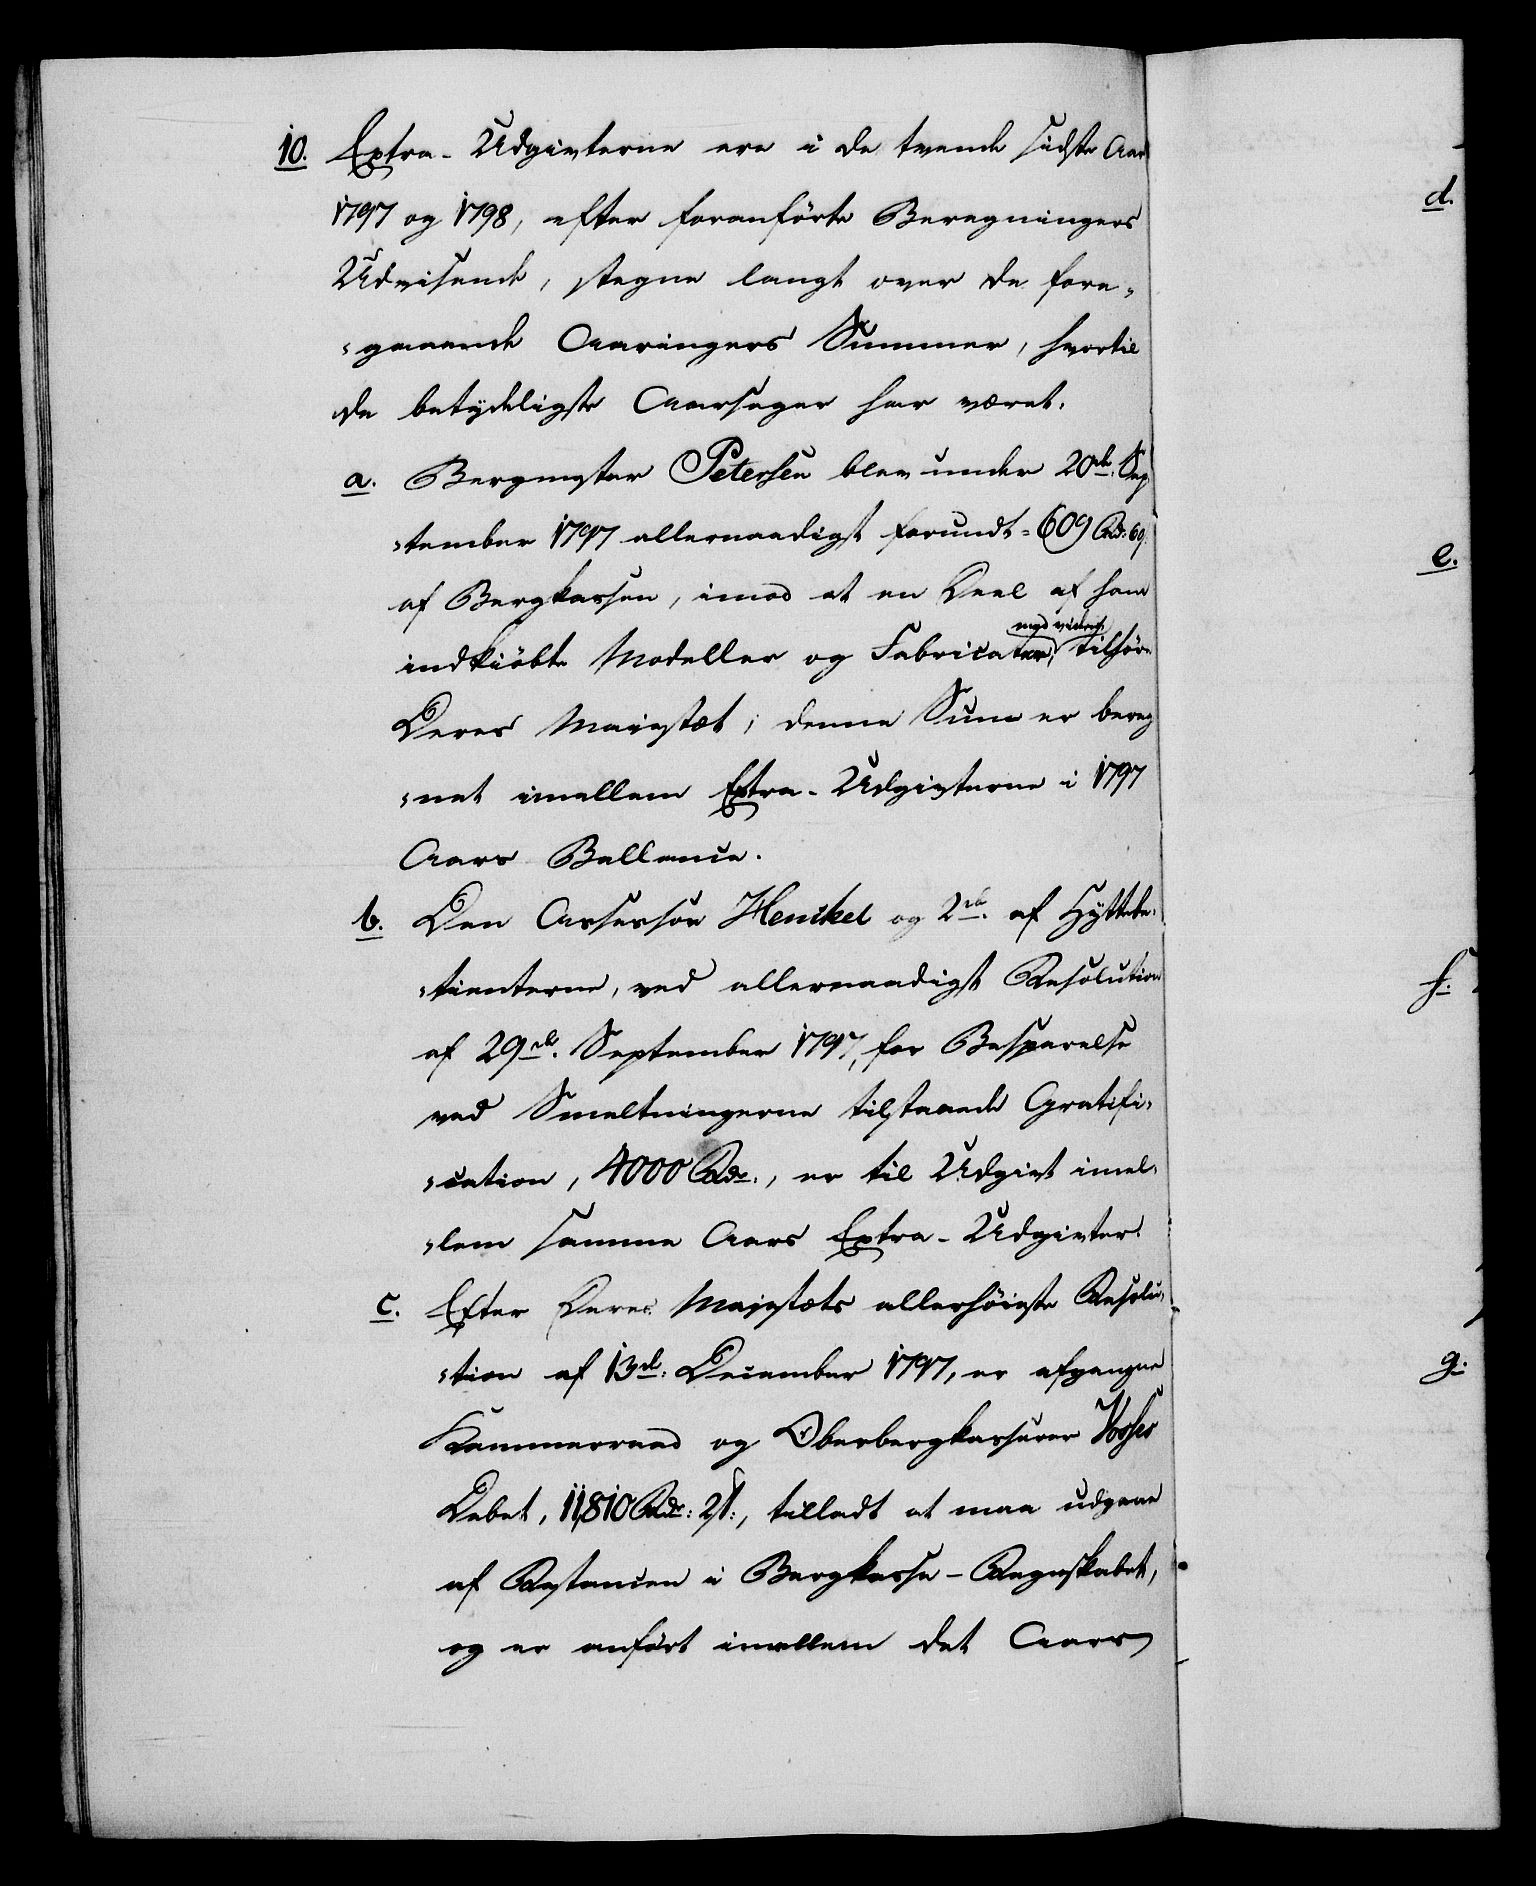 10. Extra-Udgivterne ere i de tvende sidste Aar
1797 og 1798, efter foranførte Beregningers
Udvisende, stegne langt over de fore-
-gaaende Aaringers Summer, hvortil
de betydeligste Aarsager har været.
a. Bergmester Petersen blev under 20de Sep
-tember 1797 allernaadigst forundt = 609 Rdr. 69.
af Bergkassen, imod at en Deel af ham
indkiöbte Modeller og Fabricater, tilhöre
Deres Majestæt; denne Sum er bereg
-net imellem Extra-Udgivterne i 1797
Aars Ballance.
b. Den Assessor Henckel og 2de af Hyttebe-
-tienterne, ved allernaadigst Resolution
af 29de September 1797, for Besparelse
ved Smeltningerne tilstaaede Gratifi-
-cation, 4000 Rdr., er til Udgivt imel-
-lem samme Aars Extra-Udgivter.
c. Efter Deres Majestæts allerhöieste Resolu-
-tion af 13de December 1797, er afgangne
Kammerraad og Oberbergkasserer Vosses
Debet, 11,810 Rdr. 2 ß., tilladt at maa udgaae
af Restancen i Bergkasse-Regnskabet,
og er anfört imellem det Aars
d.
e.
f.
g.